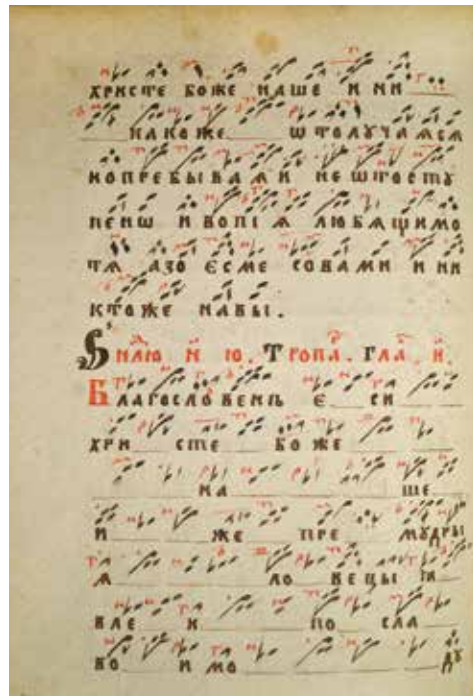 ХРИСТЕ БОЖЕ НАШЕ И НИ
НАКОЖЕ ѠТОЛУЧАѦСѦ
НОПРЕБЫВАѦИ НЕѠТОСТꙋ
ПЕНѠ ИВОПІ Ѧ ЛЮБѦЩИМО
ТѦ АЗО ЄСМЕ СОВАМИ И НИ
КТОЖЕ НАВЫ.
ТРОПА. ГЛА. И.
БЛАГОСЛОВЕНЪ Є СИ
ХРИ СТЕ БО ЖЕ
НА ШЕ
И ЖЕ ПРЕ МꙋДРЫ
Ѧ ЛО ВЕЦЫ Ꙗ
ВЛЕ И ПО СЛА
ВО И МО Дꙋ